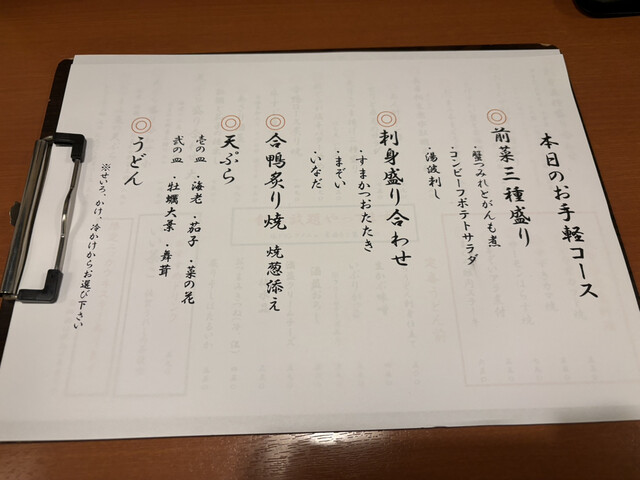 本日のお手軽コース
◎前菜三種盛り
・蟹つみれとがんも煮
・コンビーフポテトサラダ
・湯波刺し
◎刺身盛り合わせ
・すまかつおたたき
・まぞい
・いなだ
◎合鴨炙り焼 焼葱添え
◎天ぷら
壱の皿 ・海老・茄子・菜の花
弐の皿 ・牡蠣大葉・舞茸
◎うどん
※せいろ、かけ、冷かけからお選び下さい